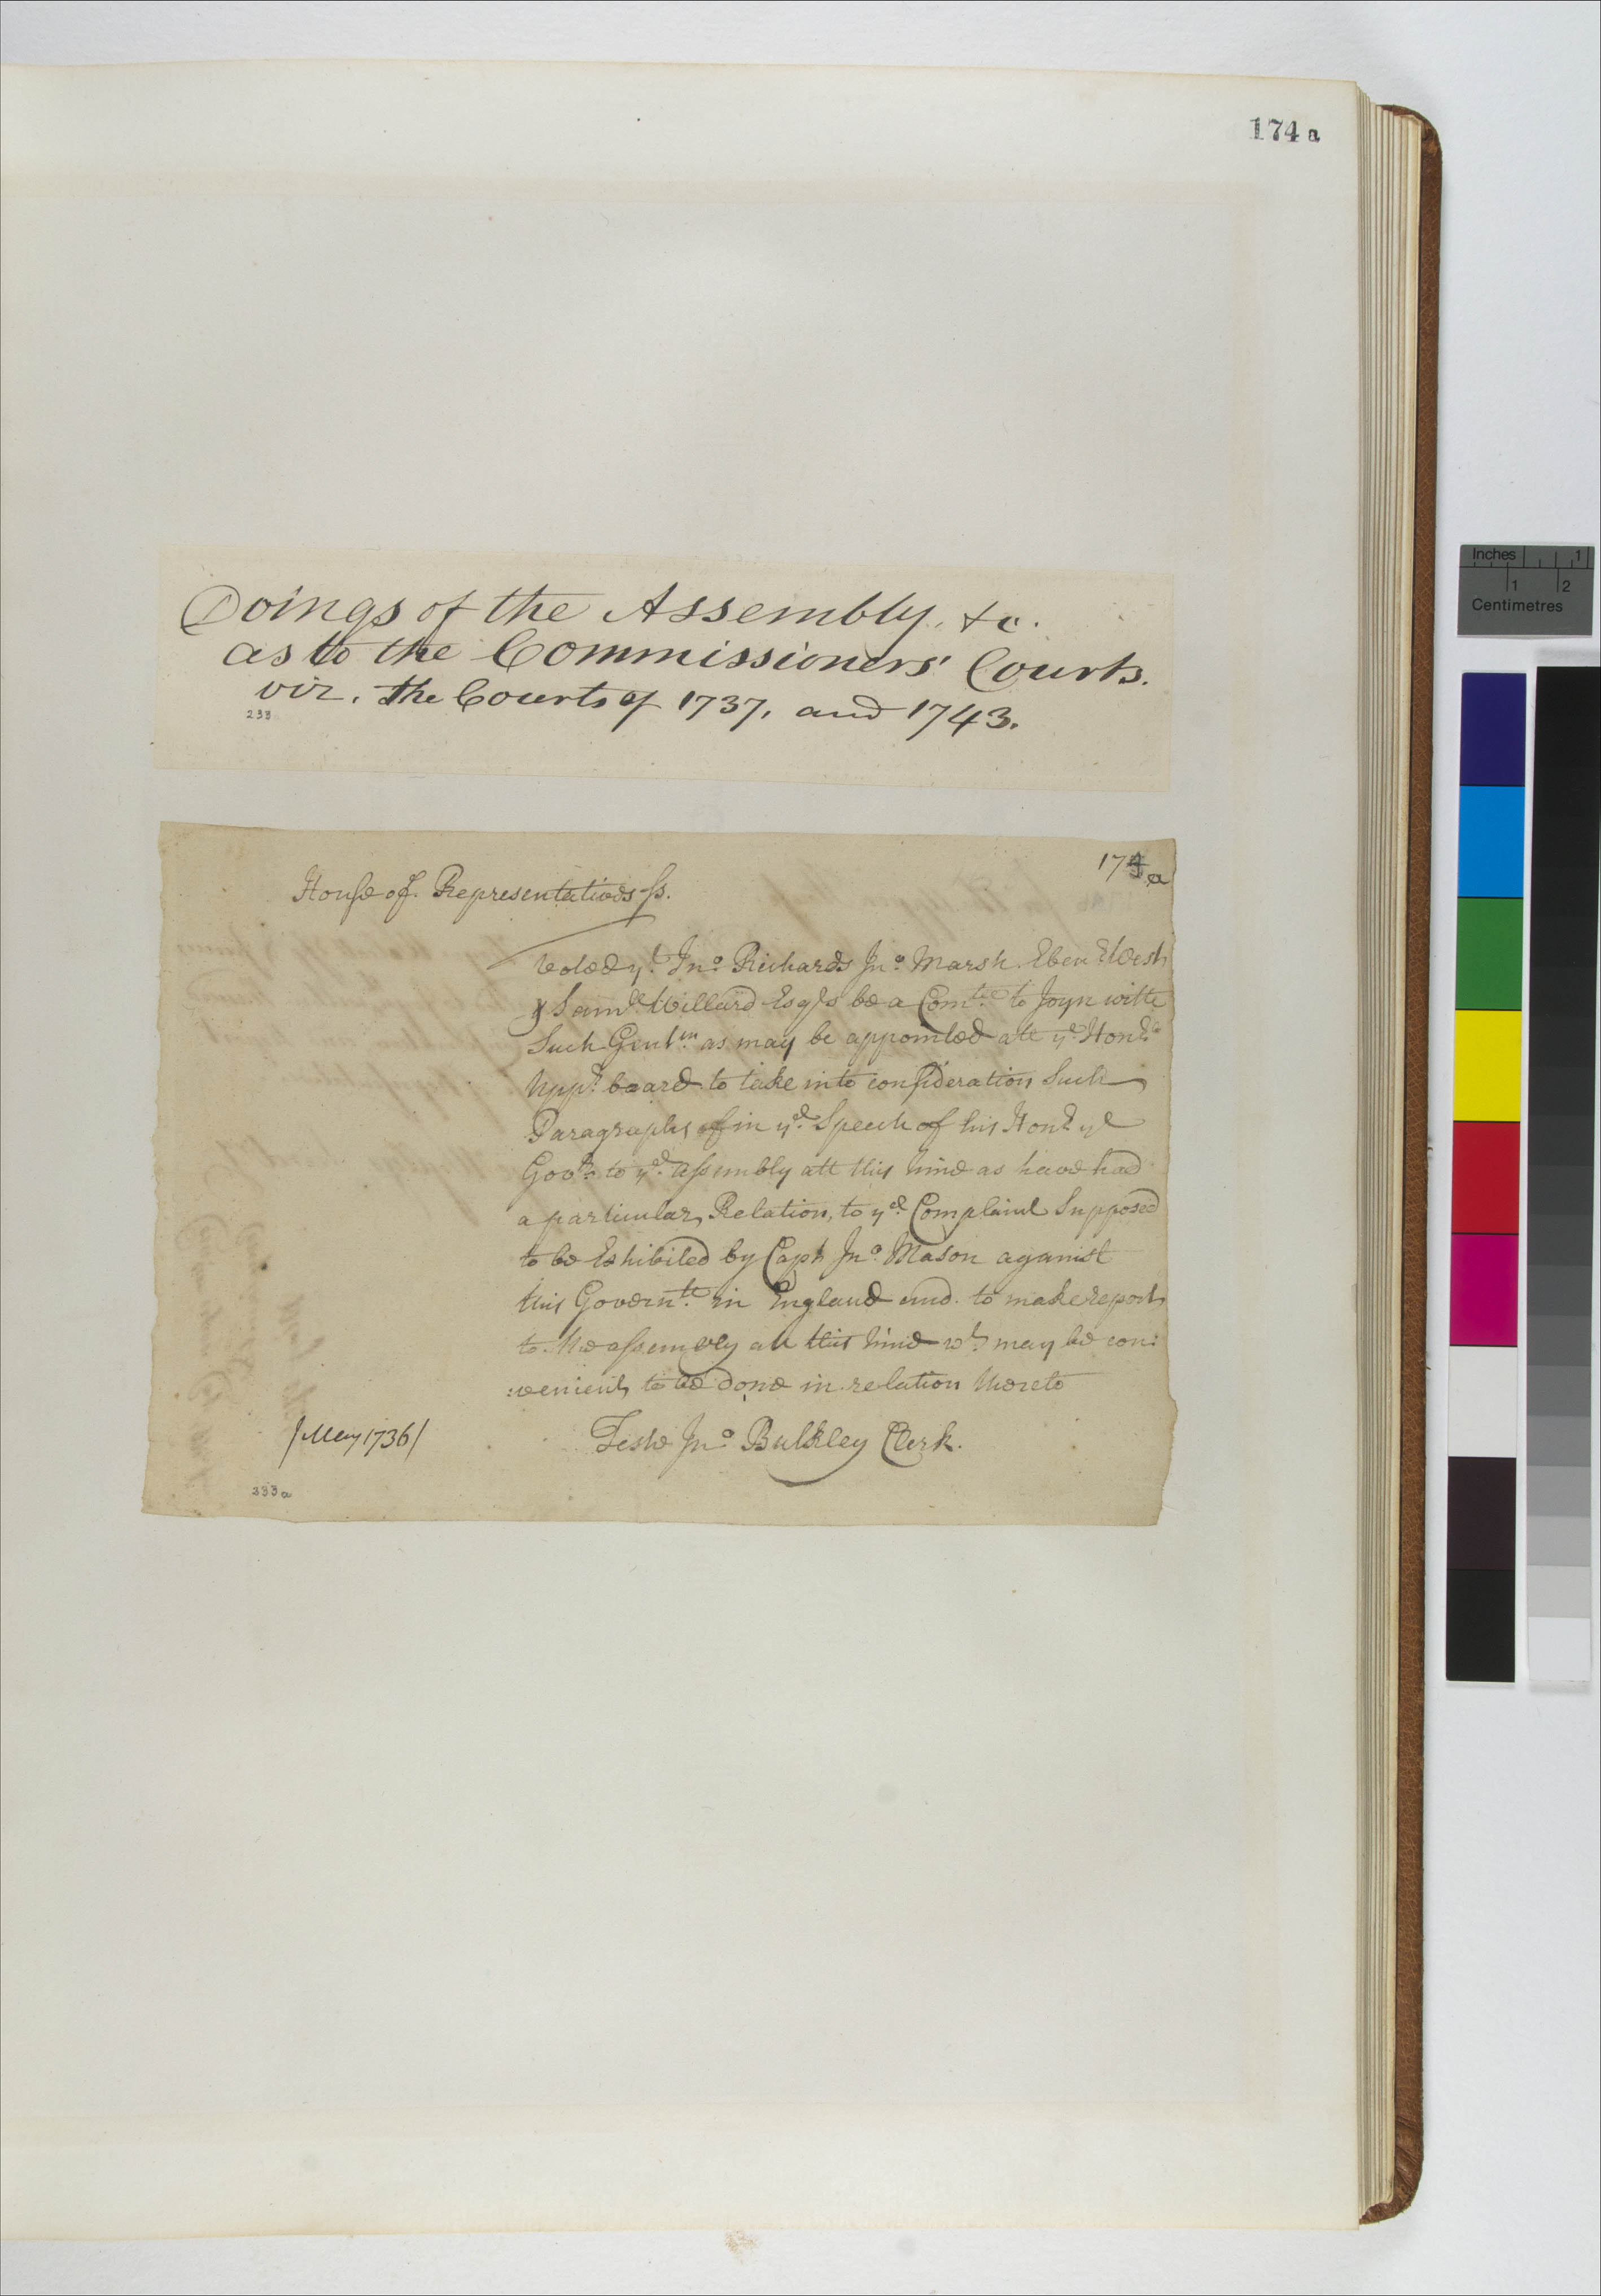 174 a
Doings of the Assembly, &c.
as to the Commissioners' Courts.
viz. the Courts of 1737, and 1743.
233
174 a
House of Representatives ss.
Voted yt Jno Richards Jno Marsh Ebenr West
& Samll Willard Esqrs be a Comtee to Joyn with
Such Gentmn as may be appointed att ye Honble
Uppr board to take into consideration Such
Paragraphs in ye Speech of his Honr ye
Govr to ye Assembly att this time as have had
a particular Relation, to ye Complaint Supposed
to be Exhibited by Capt Jno Mason against
this Governtt in England and to make report
to the assembly att this time wt may be con:
:venient to be done in relation thereto
Teste Jno Bulkley Clerk.
/May 1736/
233 a